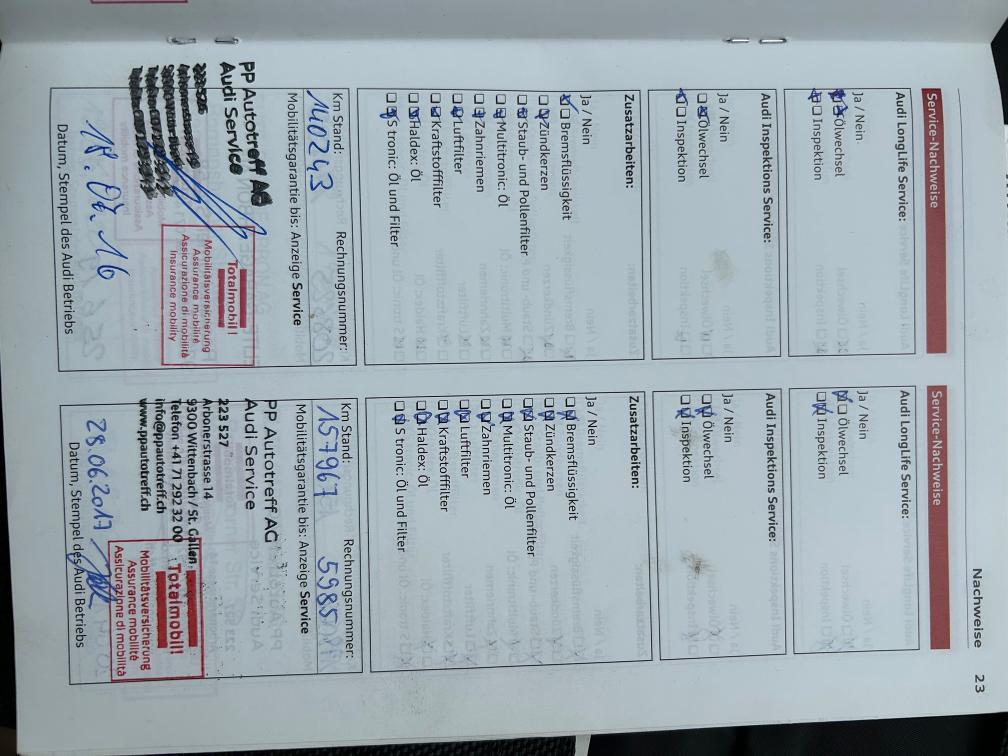 Nachweise 23
Service-Nachweise
Audi LongLife Service:
Ja / Nein
Ölwechsel
Inspektion
Audi Inspektions Service:
Ja / Nein
Ölwechsel
Inspektion
Zusatzarbeiten:
Ja / Nein
Bremsflüssigkeit
Zündkerzen
Staub- und Pollenfilter
Multitronic: Öl
Zahnriemen
Luftfilter
Kraftstofffilter
Haldex: Öl
S tronic: Öl und Filter
Km Stand: Rechnungsnummer:
140243
Mobilitätsgarantie bis: Anzeige Service
PP Autotreff AG
Audi Service
Totalmobil!
Mobilitätsversicherung
Assurance mobilité
Assicurazione di mobilità
Insurance mobility
Datum, Stempel des Audi Betriebs
Service-Nachweise
Audi LongLife Service:
Ja / Nein
Ölwechsel
Inspektion
Audi Inspektions Service:
Ja / Nein
Ölwechsel
Inspektion
Zusatzarbeiten:
Ja / Nein
Bremsflüssigkeit
Zündkerzen
Staub- und Pollenfilter
Multitronic: Öl
Zahnriemen
Luftfilter
Kraftstofffilter
Haldex: Öl
S tronic: Öl und Filter
Km Stand: Rechnungsnummer:
157967 5985
Mobilitätsgarantie bis: Anzeige Service
PP Autotreff AG
Audi Service
223 527
Arbonerstrasse 14
9300 Wittenbach / St. Gallen
Telefon +41 71 292 32 00
info@ppautotreff.ch
www.ppautotreff.ch
Totalmobil!
Mobilitätsversicherung
Assurance mobilité
Assicurazione di mobilità
28.06.2017
Datum, Stempel des Audi Betriebs